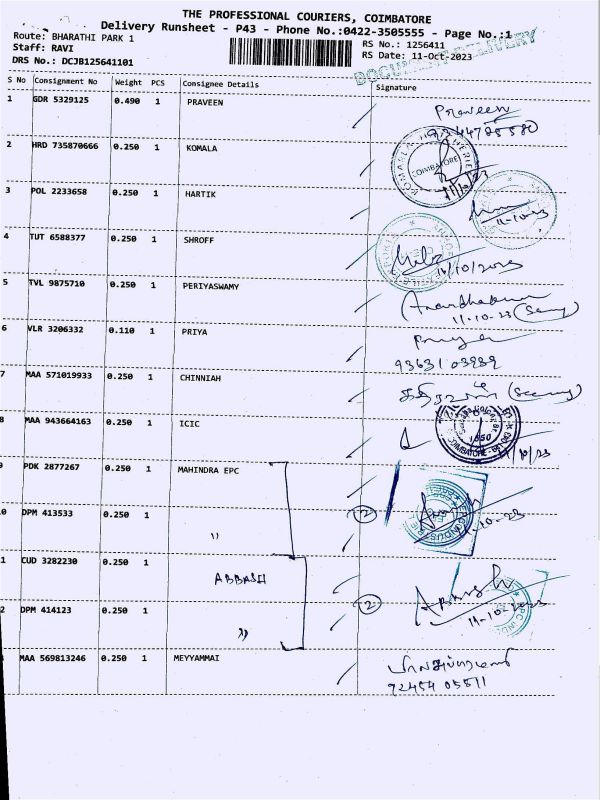 THE PROFESSIONAL COURIERS, COIMBATORE
Delivery Runsheet - P43 - Phone No.:0422-3505555 - Page No.:1
Route: BHARATHI PARK 1
RS No.: 1256411
Staff: RAVI
RS Date: 11-Oct-2023
DRS No.: DCJB125641101
DOCUMENT DELIVERY
S No Consignment No Weight PCS Consignee Details Signature
1 GDR 5329125 0.490 1 PRAVEEN
Praveen
2 HRD 735870666 0.250 1 KOMALA
COIMBATORE
3 POL 2233658 0.250 1 HARTIK
11-10-23
4 TUT 6588377 0.250 1 SHROFF
11/10/2023
5 TVL 9875710 0.250 1 PERIYASWAMY
11-10-23
6 VLR 3206332 0.110 1 PRIYA
Priya
93631 03939
7 MAA 571019933 0.250 1 CHINNIAH
8 MAA 943664163 0.250 1 ICIC
9 PDK 2877267 0.250 1 MAHINDRA EPC
0 DPM 413533 0.250 1 "
2
1 CUD 3282230 0.250 1 ABBASH
2 DPM 414123 0.250 1 "
2
11-10-2023
MAA 569813246 0.250 1 MEYYAMMAI
92454 05511